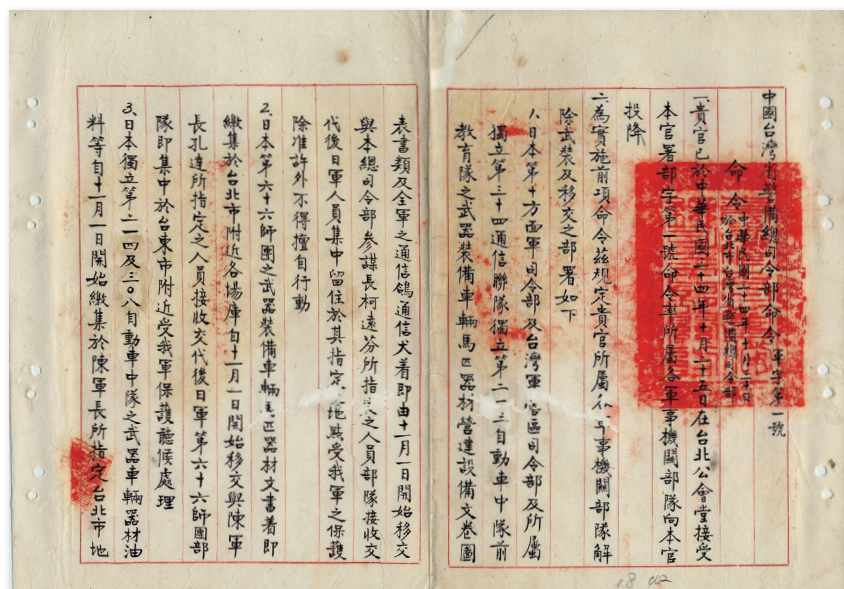 中國台灣省警備總司令部命令 軍字第一號
命令 中華民國三十四年十月三十日
於台北市台灣省警備總司令部
一、貴官已於中華民國三十四年十月二十五日在台北公會堂接受
本官署部字第一號命令率所屬各軍事機關部隊向本官
投降
二、為實施前項命令茲規定貴官所屬 事機關部隊解
除武裝及移交之部署如下
1、日本第十方面軍司令部及台灣軍管區司令部及所屬
獨立第三十四通信聯隊獨立第二一三自動車中隊前
教育隊之武器裝備車輛馬匹器材營建設備文卷圖
表書類及全軍之通信鴿通信犬着即由十一月一日開始移交
與本總司令部參謀長柯遠芬所指 之人員部隊接收交
代後日軍人員集中留住於其指定 地點受我軍之保護
除准許外不得擅自行動
2、日本第六十六師團之武器裝備車輛馬匹器材文書着即
繳集於台北市附近各場庫自十一月一日開始移交與陳軍
長孔達所指定之人員接收交代後日軍第六十六師團部
隊即集中於台東市附近受我軍保護聽候處理
3、日本獨立第二一四及三〇八自動車中隊之武器車輛器材油
料等自十一月一日開始繳集於陳軍長所指定台北市地
18 002